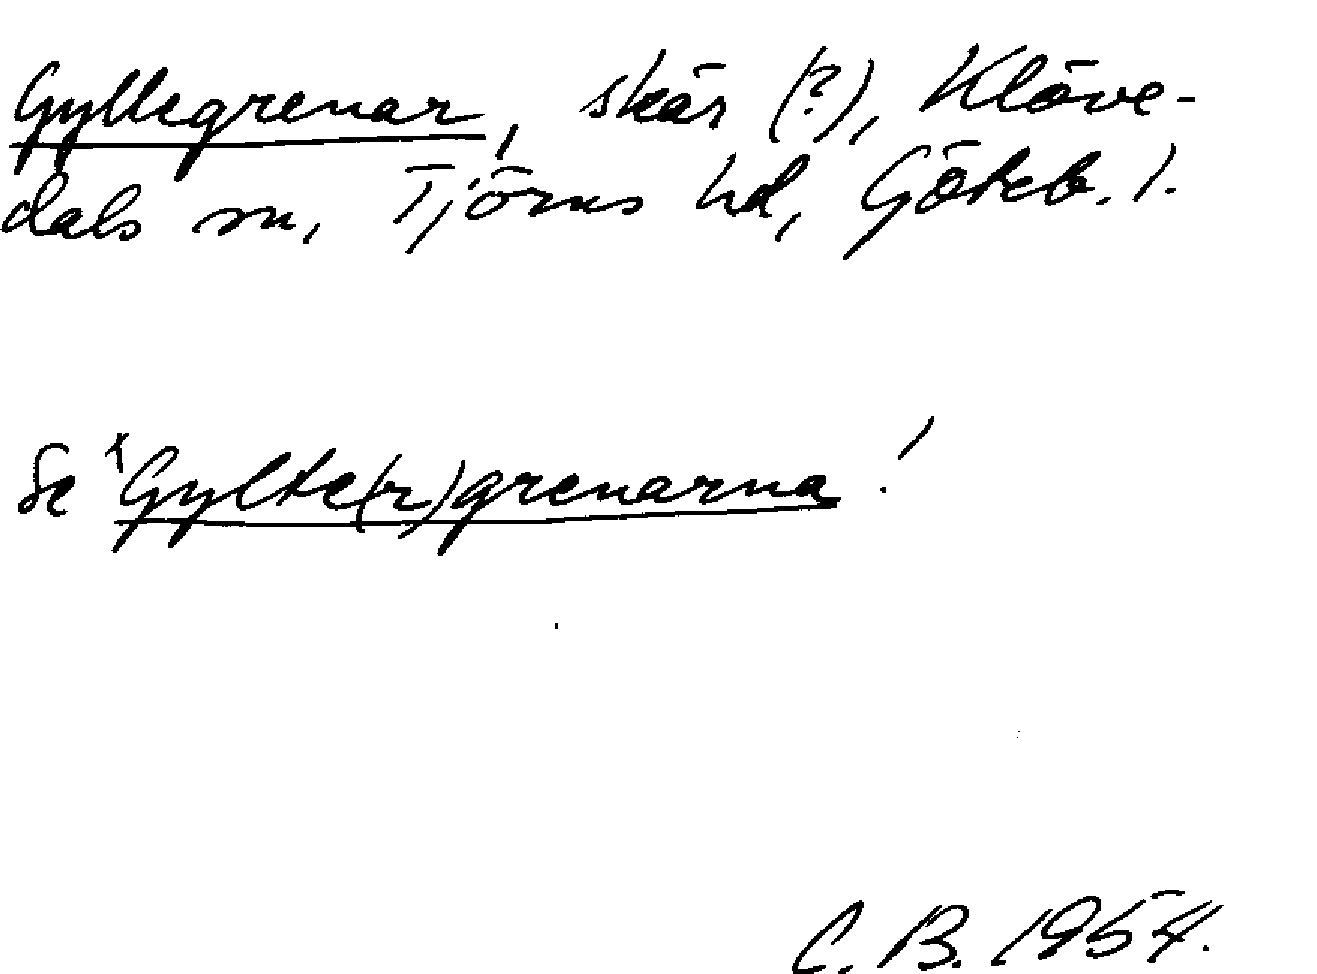 Gyllegrenar, skär (?), Klöve-
dals sn, Tjörns hd, Göteb. l.
Se *Gylte(r)grenarna!
C. B. 1954.